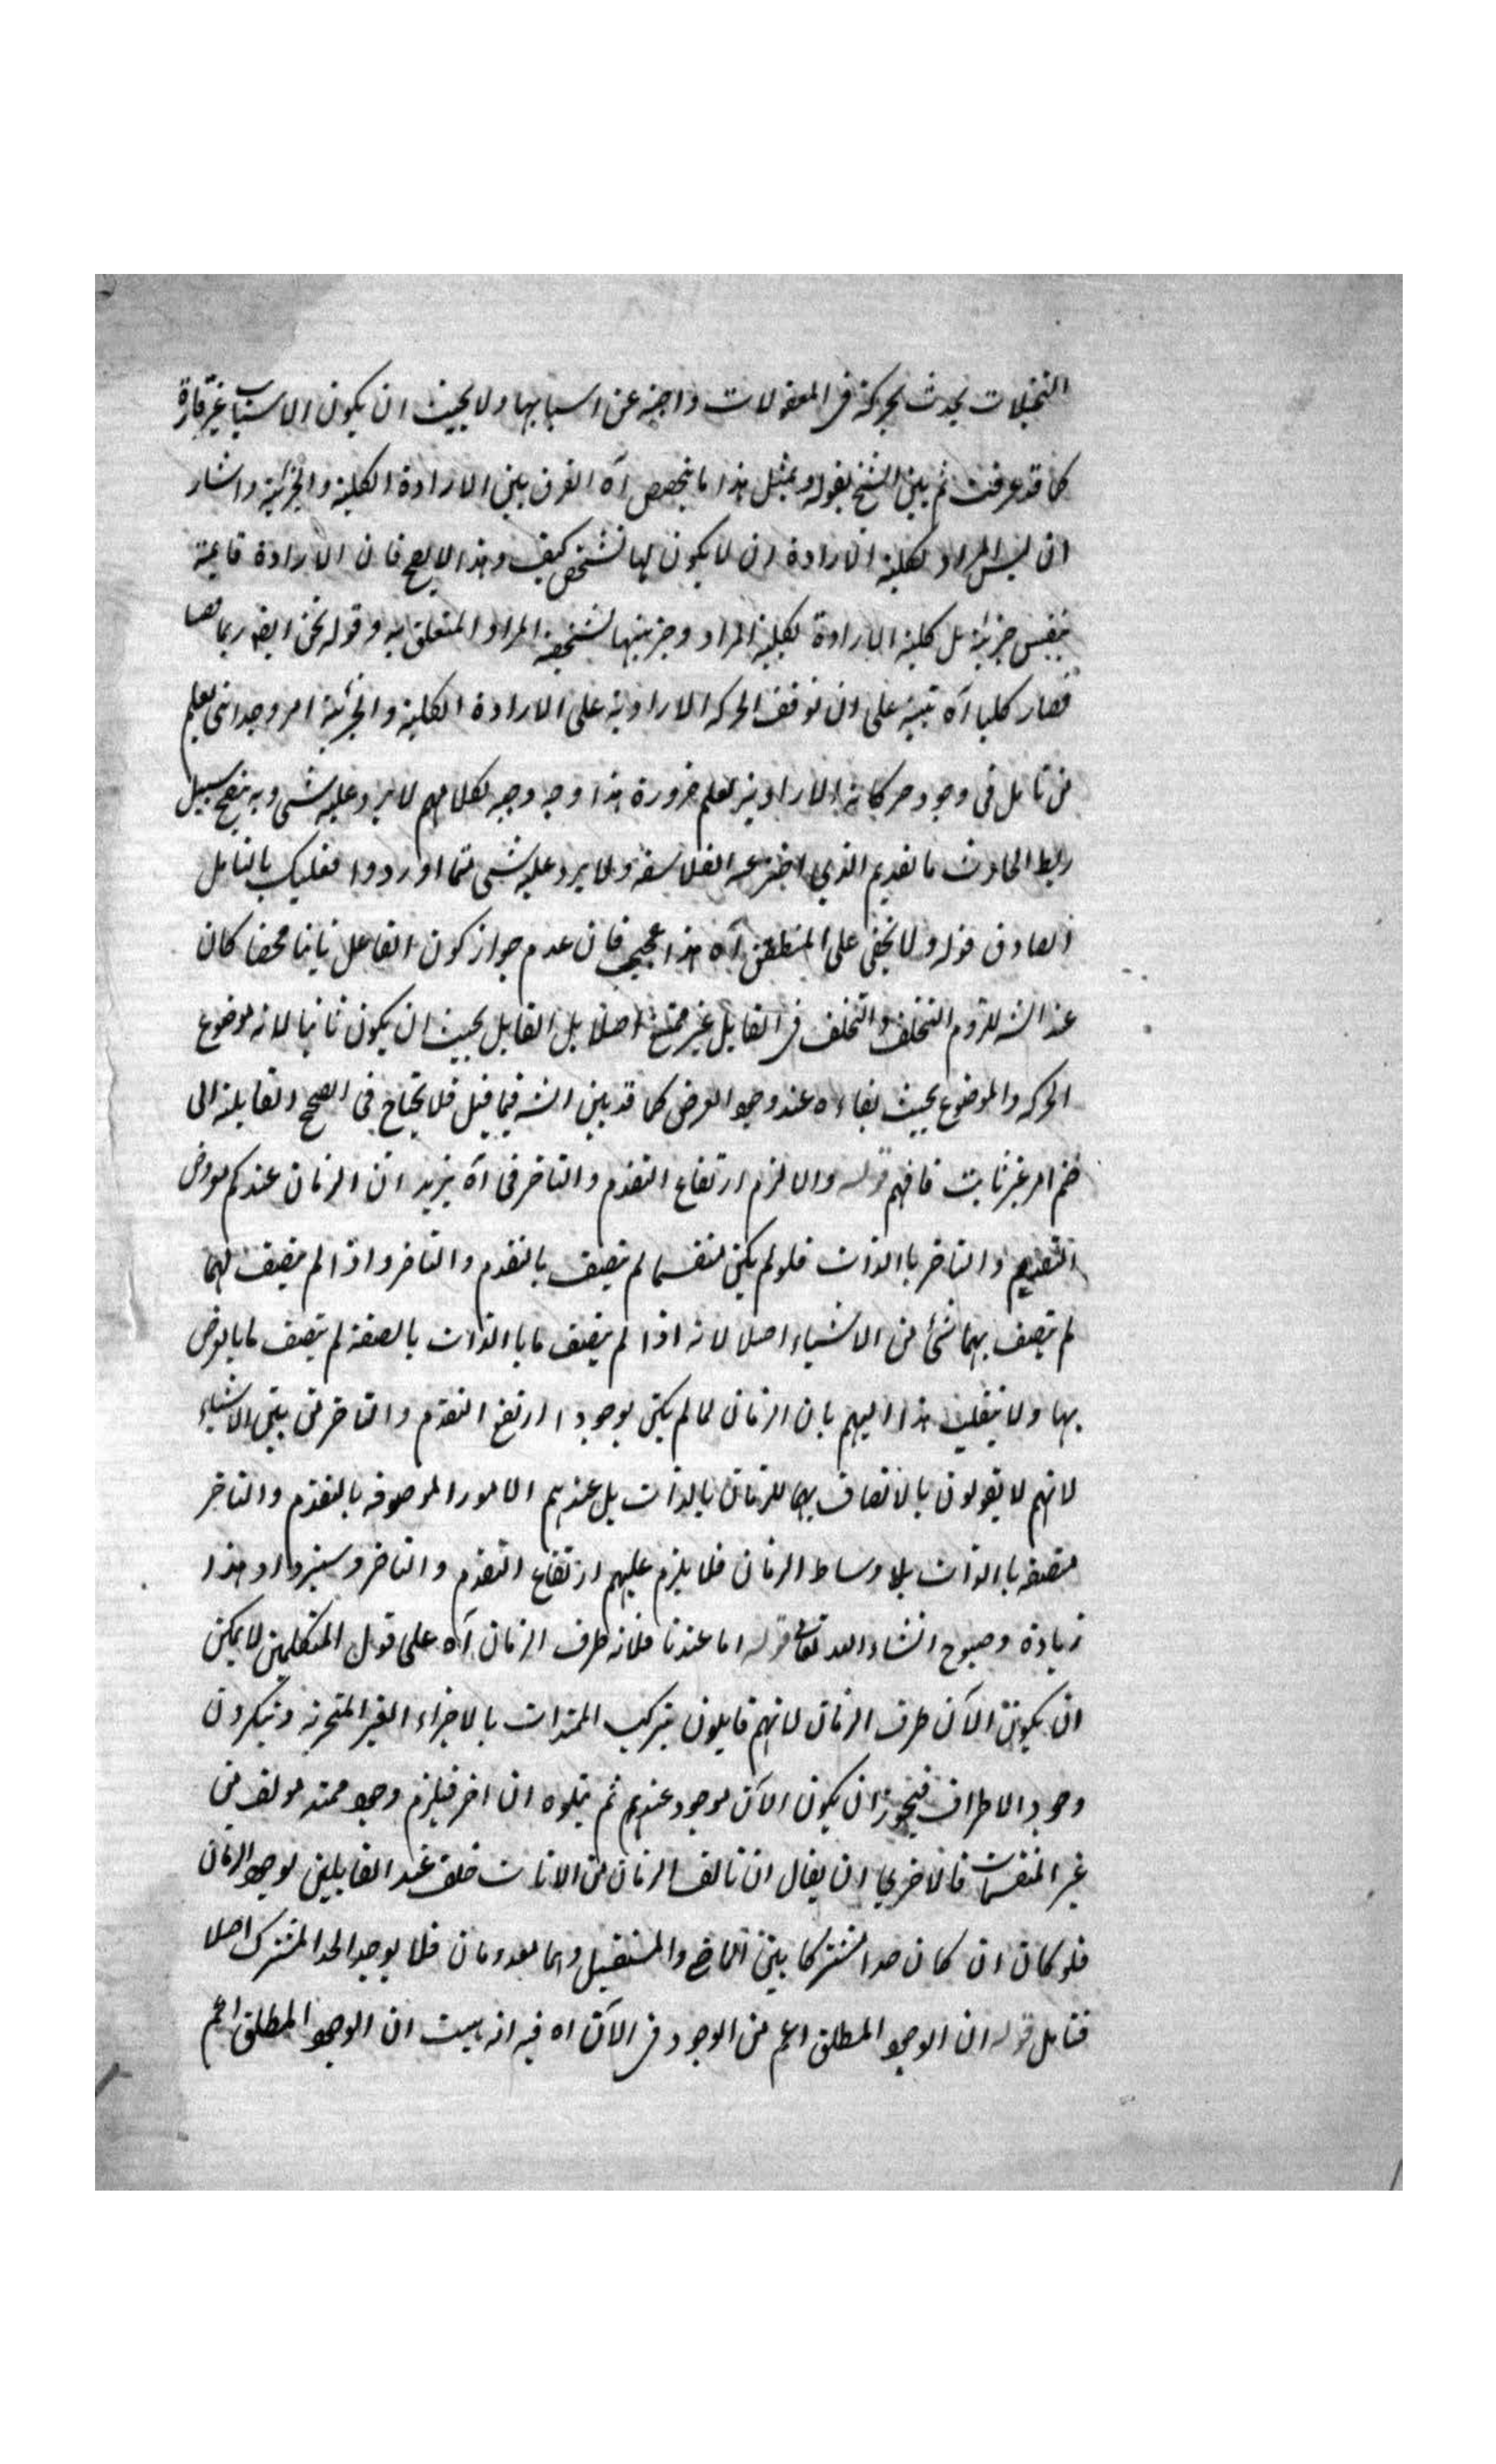 التخيلات يحدث بحركة فى المعقولات واجبة عن اسبابها ولا يجب ان يكون الاسباب غير قارة
كما قد عرفت ثم بين الشيخ بقوله وبمثل هذا ما يخصص آه الفرق بين الارادة الكلية والجزئية واشار
ان ليس المراد بكلية الارادة ان لا يكون لها تشخص كيف وهذا لا يصح فان الارادة قائمة
بنفس جزئية بل كلية الارادة لكلية المراد وجزئيتها لشخصية المراد المتعلق به وقوله نحن ايضا ربما
فصار كليا آه تنبيه على ان توقف الحركة الارادية على الارادة الكلية والجزئية امر وجدانى يعلم
من تامل فى وجود حركاته الارادية يعلم ضرورة هذا وجه وجيه لكلامهم لا يرد عليه شى وبه يتضح سبيل
ربط الحادث بالقديم الذي اخترعه الفلاسفة ولا يرد عليه شى مما اوردوا فعليك بالتامل
الصادق قوله ولا يخفى على المنطقى آه هذا عجيب فان عدم جواز كون الفاعل ثابتا محضا كان
عند الشه للزوم التخلف والتخلف فى القابل غير ممتنع اصلا بل القابل يجب ان يكون ثابتا لانه موضوع
الحركة والموضوع يجب بقاءه عند وجود العرض كما قد بين الشه فيما قبل فلا يحتاج فى القابلة الى
ضم امر غير ثابت فافهم قوله والا لزم ارتفاع التقدم والتاخر فى آه يريد ان الزمان عندكم معروض
التقدم والتاخر بالذات فلو لم يكن منقسما لم يتصف بالتقدم والتاخر واذا لم يتصف بهما
لم يتصف بهما شئ من الاشياء اصلا لانه اذا لم يتصف ما بالذات بالصفة لم يتصف ما بالعرض
بها ولا ينقلب هذا اليهم بان الزمان لما لم يكن موجودا ارتفع التقدم والتاخر من بين الاشياء
لانهم لا يقولون بالاتصاف بهما للزمان بالذات بل عندهم الامور الموصوفة بالتقدم والتاخر
متصفة بالذات بلا وساط الزمان فلا يلزم عليهم ارتفاع التقدم والتاخر وسيزداد هذا
زيادة وضوح انشاء الله تعالى قوله اما عندنا فلانه طرف الزمان آه على قول المتكلمين لا يمكن
ان يكون الآن طرف الزمان لانهم قايلون بتركب الممتدات بالاجزاء الغير المتجزية وينكرون
وجود الاطراف فيجوز ان يكون الآن موجود عندهم ثم يتلوه ان اخر فيلزم وجود ممتد مولف من
غير المنقسمات فالاخرى ان يقال ان تالف الزمان من الانات خلف عند القايلين بوجود الزمان
فلو كان ان كان حدا مشتركا بين الماضى والمستقبل وهما معدومان فلا يوجد الحد المشترك اصلا
فتامل قوله ان الوجود المطلق اعم من الوجود فى الآن اه فيه انه ان الوجود المطلق اعم